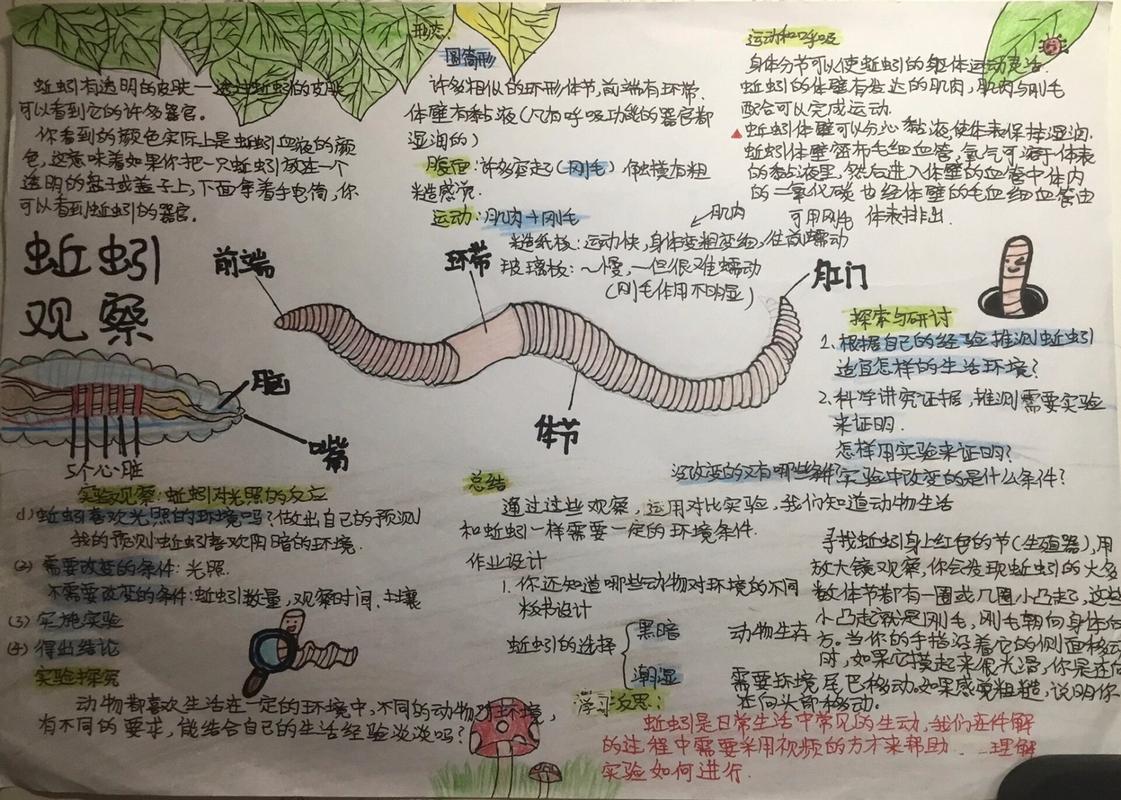 蚯蚓有透明的皮肤一透过蚯蚓的皮肤
可以看到它的许多器官。
你看到的颜色实际上是蚯蚓血液的颜
色,这意味着如果你把一只蚯蚓放在一个
透明的盘子或盖子上,下面拿着手电筒,你
可以看到蚯蚓的器官。
蚯蚓
观察
形态
圆筒形
许多相似的环形体节,前端有环带.
体壁有黏液(只为呼吸功能的器官都
湿润的)
腹面:许多突起(刚毛)
粗糙感觉.
运动:肌肉+刚毛
肌肉
粗糙纸板:运动快,身体变粗变细,往前蠕动
玻璃板:~慢,一但很难蠕动
(刚毛作用不明显)
运动和呼吸
身体分节可以使蚯蚓的躯体运动灵活.
蚯蚓的体壁有发达的肌肉,肌肉与刚毛
配合可以完成运动.
▲蚯蚓体壁可以分泌黏液,使体表保持湿润.
蚯蚓体壁密布毛细血管,氧气可溶于体表
的黏液里,然后进入体壁的血管中体内
的二氧化碳也经体壁的毛细血管由
可用刚毛 体表排出.
前端
环带
肛门
体节
脑
嘴
5个心脏
探索与研讨
1.根据自己的经验推测蚯蚓
适宜怎样的生活环境?
2.科学讲究证据,推测需要实验
来证明.
怎样用实验来证明?
没改变的又有哪些条件?实验中改变的是什么条件?
实验观察:蚯蚓对光照的反应
(1)蚯蚓喜欢光照的环境吗?做出自己的预测
我的预测:蚯蚓喜欢阴暗的环境.
(2)需要改变的条件:光照.
不需要改变的条件:蚯蚓数量,观察时间、土壤
(3)实施实验
(4)得出结论
实验探究
动物都喜欢生活在一定的环境中,不同的动物对环境,
有不同的要求,能结合自己的生活经验谈谈吗?
总结
通过这些观察,运用对比实验,我们知道动物生活
和蚯蚓一样需要一定的环境条件.
作业设计
1.你还知道哪些动物对环境的不同
板书设计
蚯蚓的选择{黑暗
潮湿
动物生存
需要环境
寻找蚯蚓身上红色的节(生殖器),用
放大镜观察,你会发现蚯蚓的大多
数体节都有一圈或几圈小凸起,这些
小凸起就是刚毛,刚毛朝向身体后
方.当你的手指沿着它的侧面移动
时,如果它摸起来很光滑,你是在向
尾巴移动,如果感觉粗糙,说明你
在向头部移动.
学习反思:
蚯蚓是日常生活中常见的生动,我们在件解
的过程中需要采用视频的方才来帮助 理解
实验如何进行.